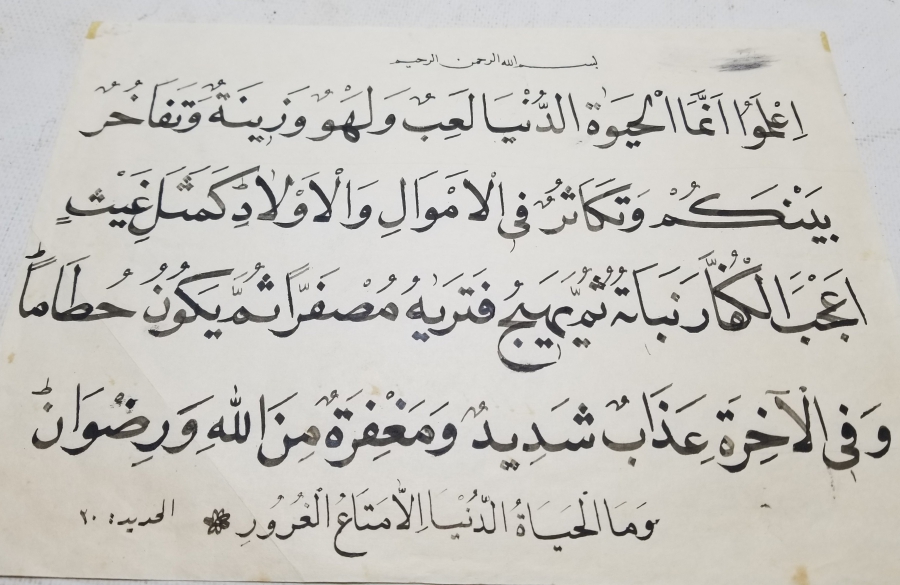 بسم الله الرحمن الرحيم
اِعْلَمُوْا اَنَّمَا الْحَيٰوةُ الدُّنْيَا لَعِبٌ وَلَهْوٌ وَزِينَةٌ وَتَفَاخُرٌ
بَيْنَكُمْ وَتَكَاثُرٌ فِى الْاَمْوَالِ وَالْاَوْلَادِ كَمَثَلِ غَيْثٍ
اَعْجَبَ الْكُفَّارَ نَبَاتُهُ ثُمَّ يَهِيْجُ فَتَرٰيهُ مُصْفَرًّا ثُمَّ يَكُوْنُ حُطَامًا
وَفِى الْآخِرَةِ عَذَابٌ شَدِيدٌ وَمَغْفِرَةٌ مِنَ اللّٰهِ وَرِضْوَانٌ
وَمَا الْحَيَاةُ الدُّنْيَا اِلَّا مَتَاعُ الْغُرُورِ الحديد: ٢٠